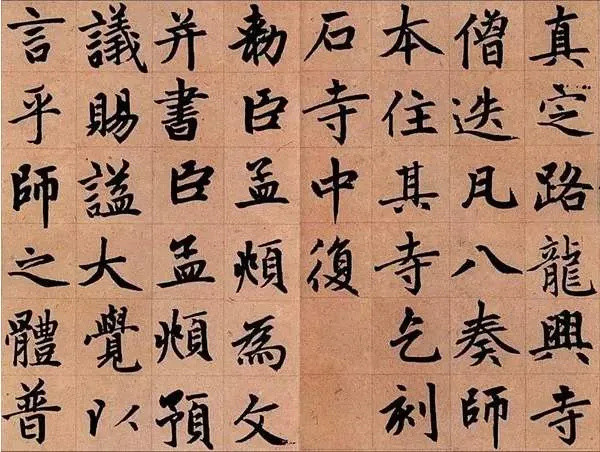 真定路龍興寺
僧迭凡八奏師
本住其寺乞刻
石寺中復
敕臣孟頫為文
并書臣孟頫預
議賜謚大覺以
言乎師之體普